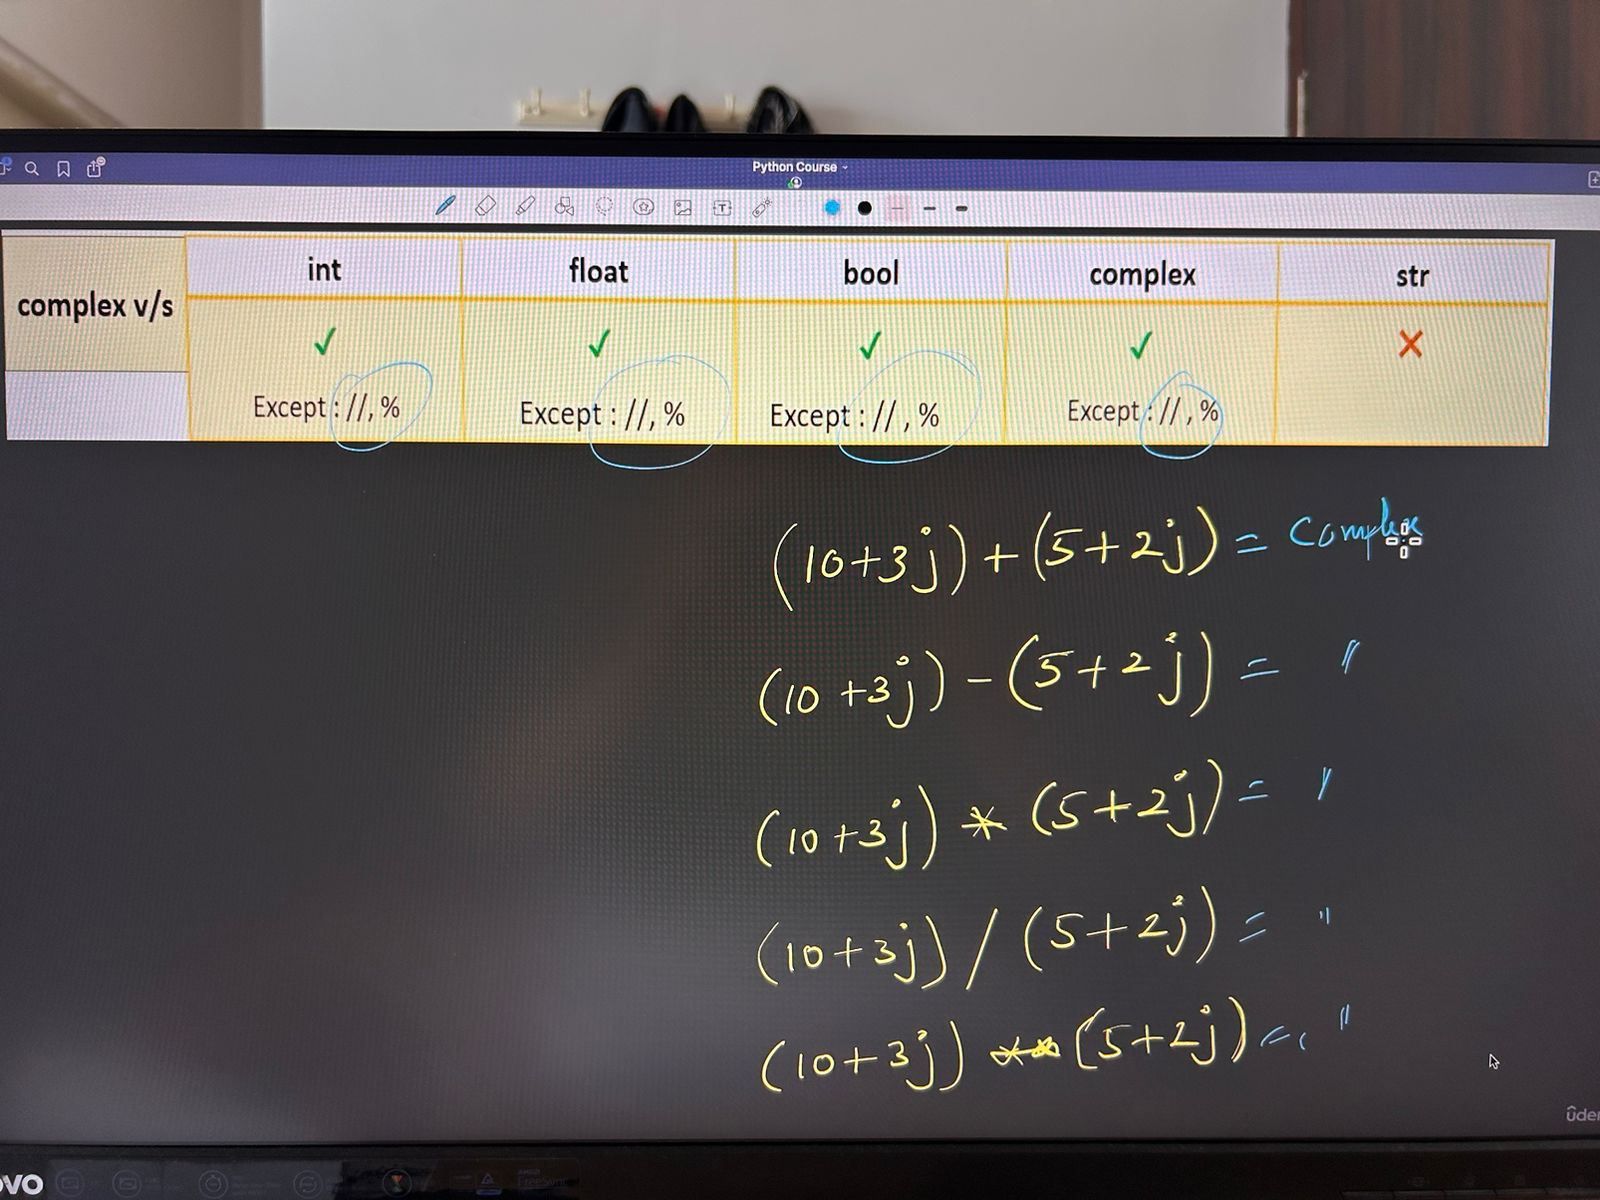 Python Course
complex v/s int float bool complex str
✓ ✓ ✓ ✓ ✕
Except : //, % Except : //, % Except : // , % Except : // , %
(10+3j) + (5+2j) = Complex
(10+3j) - (5+2j) = "
(10+3j) * (5+2j) = "
(10+3j) / (5+2j) = "
(10+3j) ** (5+2j) = "
ûde
ovo
AMD
FreeSync